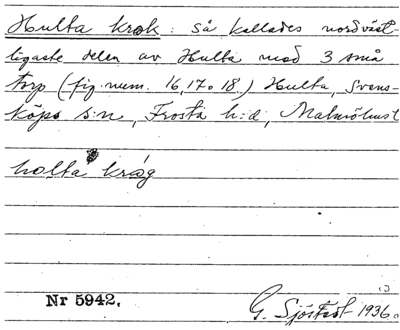 Hulta krok: Så kallades nordväst-
ligaste delen av Hulta med 3 små
torp (fig. num. 16, 17 o 18.) Hulta, Svens-
köps s:n, Frosta h:d, Malmöhus l
holta kråg
Nr 5942. G. Sjöstedt 1936.